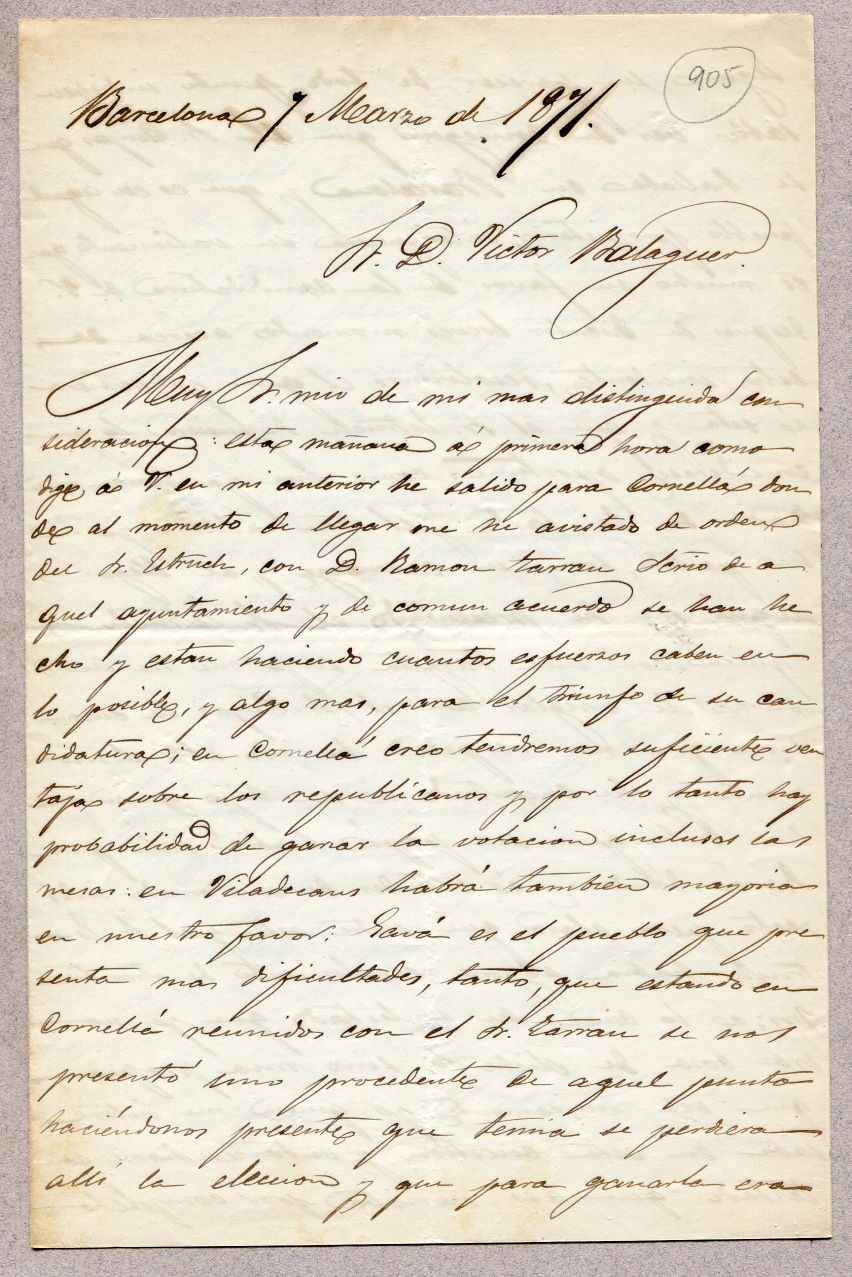 905
Barcelona 7 Marzo de 1871.
Sr. D. Victor Balaguer.
Muy Sr. mio de mi mas distinguida con
sideracion: esta mañana á primera hora como
dige á V. en mi anterior he salido para Cornellá don
de al momento de llegar me he avistado de orden
del Sr. Estruch, con D. Ramon Tarrau Scrio de a
quel ayuntamiento y de comun acuerdo se han he
cho y estan haciendo cuantos esfuerzos caben en
lo posible, y algo mas, para el triunfo de su can
didatura; en Cornellá creo tendremos suficiente ven
taja sobre los republicanos y por lo tanto hay
probabilidad de ganar la votacion inclusas las
mesas: en Viladecans habrá tambien mayoria
en nuestro favor: Gavá es el pueblo que pre
senta mas dificultades, tanto, que estando en
Cornellá reunidos con el Sr. Tarrau se nos
presentó uno procedente de aquel punto
haciéndonos presente que temia se perdiera
allí la eleccion y que para ganarla era